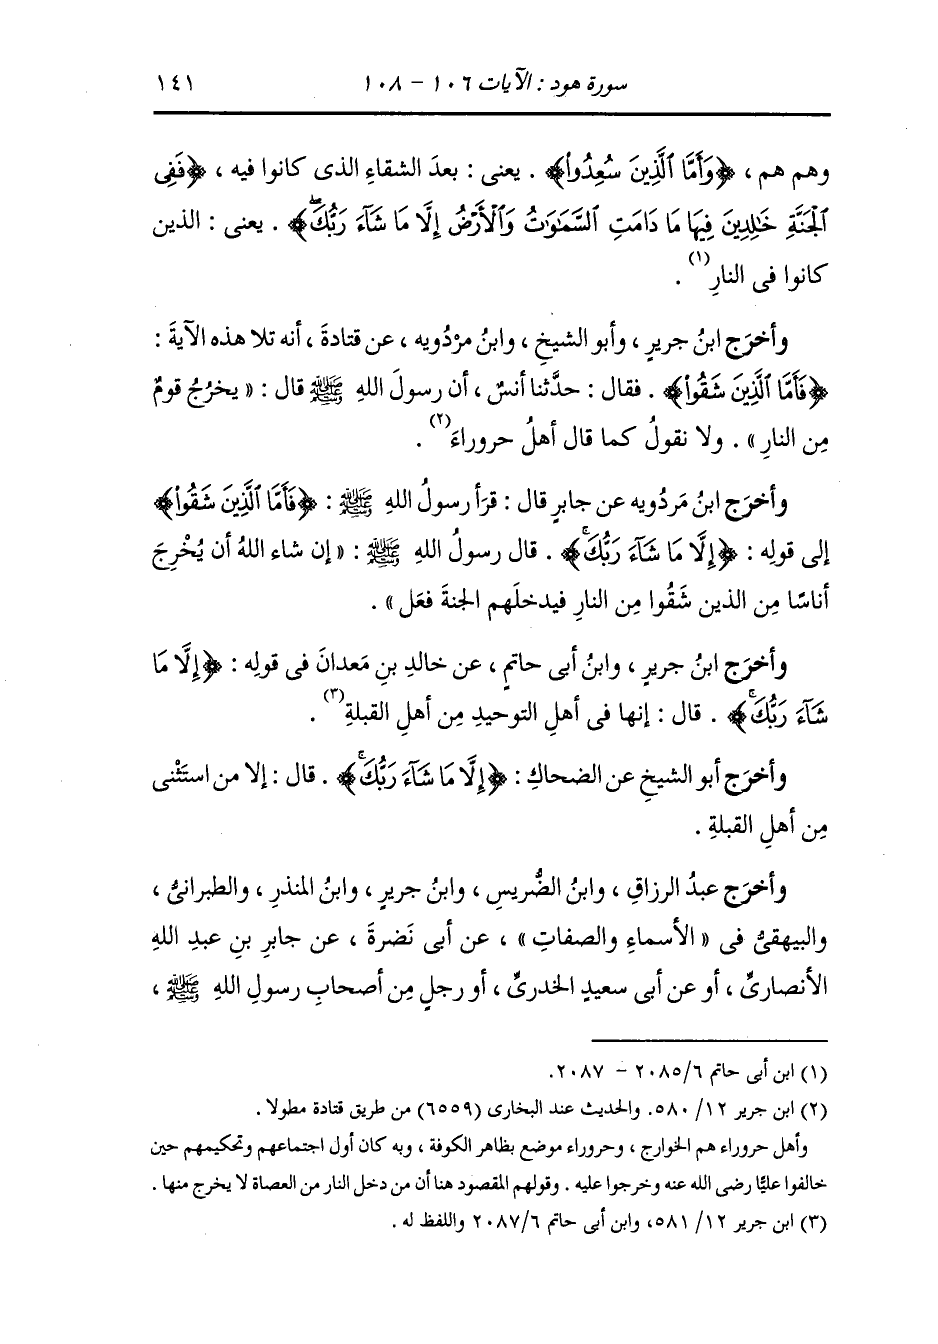 سورة هود : الآيات ١٠٦ – ١٠٨ ١٤١
وهم هم ، ﴿وَأَمَّا ٱلَّذِينَ سُعِدُوا۟﴾ . يعنى : بعدَ الشقاءِ الذى كانوا فيه ، ﴿فَفِى
ٱلْجَنَّةِ خَٰلِدِينَ فِيهَا مَا دَامَتِ ٱلسَّمَٰوَٰتُ وَٱلْأَرْضُ إِلَّا مَا شَآءَ رَبُّكَ ۖ﴾ . يعنى : الذين
كانوا فى النارِ(١) .
وأخرَج ابنُ جريرٍ ، وأبو الشيخِ ، وابنُ مرْدُويه ، عن قتادةَ ، أنه تلا هذه الآيةَ :
﴿فَأَمَّا ٱلَّذِينَ شَقُوا۟﴾ . فقال : حدَّثنا أنسٌ ، أن رسولَ اللهِ ﷺ قال : « يخرُجُ قومٌ
مِن النارِ » . ولا نقولُ كما قال أهلُ حروراءَ(٢) .
وأخرَج ابنُ مَردويه عن جابرٍ قال : قرَأ رسولُ اللهِ ﷺ : ﴿فَأَمَّا ٱلَّذِينَ شَقُوا۟﴾
إلى قولِه : ﴿إِلَّا مَا شَآءَ رَبُّكَ ۚ﴾ . قال رسولُ اللهِ ﷺ : « إن شاء اللهُ أن يُخْرِجَ
أناسًا مِن الذين شَقُوا مِن النارِ فيدخلَهم الجنةَ فعَل » .
وأخرَج ابنُ جريرٍ ، وابنُ أبى حاتمٍ ، عن خالدِ بنِ مَعدانَ فى قولِه : ﴿إِلَّا مَا
شَآءَ رَبُّكَ ۚ﴾ . قال : إنها فى أهلِ التوحيدِ مِن أهلِ القبلةِ(٣) .
وأخرَج أبو الشيخِ عن الضحاكِ : ﴿إِلَّا مَا شَآءَ رَبُّكَ ۚ﴾ . قال : إلا من استَثْنى
مِن أهلِ القبلةِ .
وأخرَج عبدُ الرزاقِ ، وابنُ الضُّريسِ ، وابنُ جريرٍ ، وابنُ المنذرِ ، والطبرانىُّ ،
والبيهقىُّ فى « الأسماءِ والصفاتِ » ، عن أبى نَضرةَ ، عن جابرِ بنِ عبدِ اللهِ
الأنصارىِّ ، أو عن أبى سعيدٍ الخدرىِّ ، أو رجلٍ مِن أصحابِ رسولِ اللهِ ﷺ ،
(١) ابن أبى حاتم ٦/ ٢٠٨٥ – ٢٠٨٧.
(٢) ابن جرير ١٢/ ٥٨٠. والحديث عند البخارى (٦٥٥٩) من طريق قتادة مطولا .
وأهل حروراء هم الخوارج ، وحروراء موضع بظاهر الكوفة ، وبه كان أول اجتماعهم وتحكيمهم حين
خالفوا عليًّا رضى الله عنه وخرجوا عليه . وقولهم المقصود هنا أن من دخل النار من العصاة لا يخرج منها .
(٣) ابن جرير ١٢/ ٥٨١، وابن أبى حاتم ٦/ ٢٠٨٧ واللفظ له .